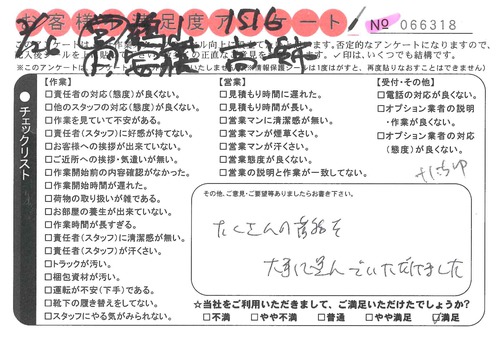 お客様満足度アンケート
№ 066318
※このアンケートは
チェックリスト
【作業】
□責任者の対応(態度)が良くない。
□他のスタッフの対応(態度)が良くない。
□作業を見ていて不安がある。
□責任者(スタッフ)に好感が持てない。
□お客様への挨拶が出来ていない。
□ご近所への挨拶・気遣いが無い。
□作業開始前の内容確認がなかった。
□作業開始時間が遅れた。
□荷物の取り扱いが雑である。
□お部屋の養生が出来ていない。
□作業時間が長すぎる。
□責任者(スタッフ)に清潔感が無い。
□責任者(スタッフ)が汗くさい。
□トラックが汚い。
□梱包資材が汚い。
□運転が不安(下手)である。
□靴下の履き替えをしてない。
□スタッフにやる気がみられない。
【営業】
□見積もり時間に遅れた。
□見積もり時間が長い。
□営業マンに清潔感が無い。
□営業マンが煙草くさい。
□営業マンが汗くさい。
□営業態度が良くない。
□営業の説明と作業が一致してない。
【受付・その他】
□電話の対応が良くない。
□オプション業者の説明
・作業が良くない。
□オプション業者の対応
(態度)が良くない。
その他、ご意見・ご要望等ありましたらお書き下さい。
たくさんの荷物を
大事に運んでいただけました
☆当社をご利用いただきまして、ご満足いただけたでしょうか?
□不満 □やや不満 □普通 □やや満足 ☑満足